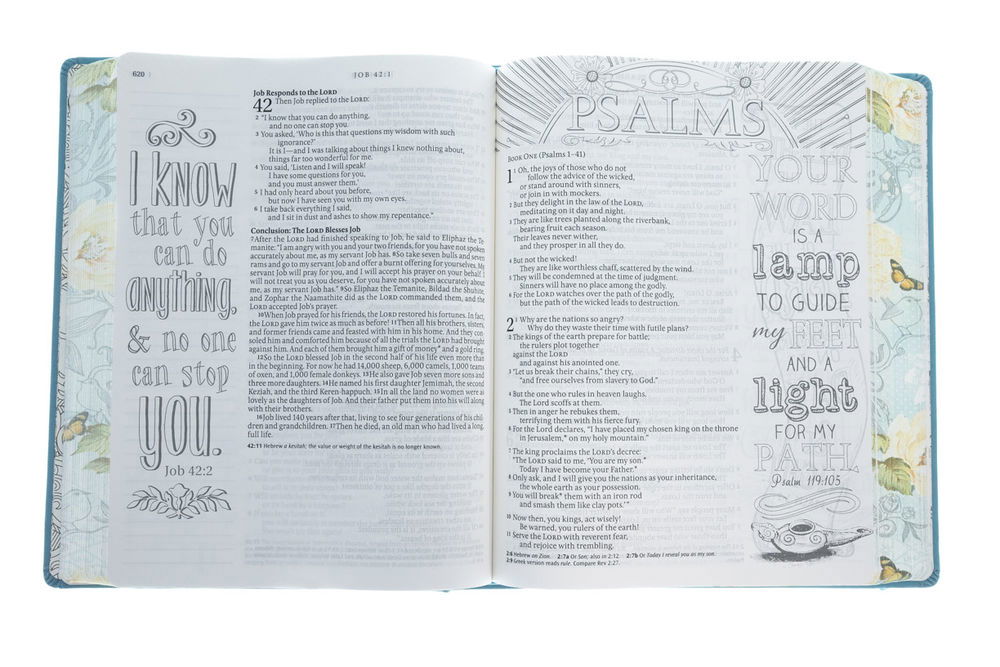 620
JOB 42:1
I KNOW
that you
can do
anything,
& no one
can stop
YOU.
Job 42:2
Job Responds to the LORD
42 Then Job replied to the LORD:
2 "I know that you can do anything,
and no one can stop you.
3 You asked, 'Who is this that questions my wisdom with such
ignorance?'
It is I—and I was talking about things I knew nothing about,
things far too wonderful for me.
4 You said, 'Listen and I will speak!
I have some questions for you,
and you must answer them.'
5 I had only heard about you before,
but now I have seen you with my own eyes.
6 I take back everything I said,
and I sit in dust and ashes to show my repentance."
Conclusion: The LORD Blesses Job
7 After the LORD had finished speaking to Job, he said to Eliphaz the Te-
manite: "I am angry with you and your two friends, for you have not spoken
accurately about me, as my servant Job has. 8 So take seven bulls and seven
rams and go to my servant Job and offer a burnt offering for yourselves. My
servant Job will pray for you, and I will accept his prayer on your behalf. I
will not treat you as you deserve, for you have not spoken accurately about
me, as my servant Job has." 9 So Eliphaz the Temanite, Bildad the Shuhite,
and Zophar the Naamathite did as the LORD commanded them, and the
LORD accepted Job's prayer.
10 When Job prayed for his friends, the LORD restored his fortunes. In fact,
the LORD gave him twice as much as before! 11 Then all his brothers, sisters,
and former friends came and feasted with him in his home. And they con-
soled him and comforted him because of all the trials the LORD had brought
against him. And each of them brought him a gift of money* and a gold ring.
12 So the LORD blessed Job in the second half of his life even more than
in the beginning. For now he had 14,000 sheep, 6,000 camels, 1,000 teams
of oxen, and 1,000 female donkeys. 13 He also gave Job seven more sons and
three more daughters. 14 He named his first daughter Jemimah, the second
Keziah, and the third Keren-happuch. 15 In all the land no women were as
lovely as the daughters of Job. And their father put them into his will along
with their brothers.
16 Job lived 140 years after that, living to see four generations of his chil-
dren and grandchildren. 17 Then he died, an old man who had lived a long,
full life.
42:11 Hebrew a kesitah; the value or weight of the kesitah is no longer known.
PSALMS
BOOK ONE (Psalms 1–41)
1 1 Oh, the joys of those who do not
follow the advice of the wicked,
or stand around with sinners,
or join in with mockers.
2 But they delight in the law of the LORD,
meditating on it day and night.
3 They are like trees planted along the riverbank,
bearing fruit each season.
Their leaves never wither,
and they prosper in all they do.
4 But not the wicked!
They are like worthless chaff, scattered by the wind.
5 They will be condemned at the time of judgment.
Sinners will have no place among the godly.
6 For the LORD watches over the path of the godly,
but the path of the wicked leads to destruction.
2 1 Why are the nations so angry?
Why do they waste their time with futile plans?
2 The kings of the earth prepare for battle;
the rulers plot together
against the LORD
and against his anointed one.
3 "Let us break their chains," they cry,
"and free ourselves from slavery to God."
4 But the one who rules in heaven laughs.
The Lord scoffs at them.
5 Then in anger he rebukes them,
terrifying them with his fierce fury.
6 For the Lord declares, "I have placed my chosen king on the throne
in Jerusalem,* on my holy mountain."
7 The king proclaims the LORD's decree:
"The LORD said to me, 'You are my son.*
Today I have become your Father.*
8 Only ask, and I will give you the nations as your inheritance,
the whole earth as your possession.
9 You will break* them with an iron rod
and smash them like clay pots.'"
10 Now then, you kings, act wisely!
Be warned, you rulers of the earth!
11 Serve the LORD with reverent fear,
and rejoice with trembling.
2:6 Hebrew on Zion. 2:7a Or Son; also in 2:12. 2:7b Or Today I reveal you as my son.
2:9 Greek version reads rule. Compare Rev 2:27.
YOUR
WORD
IS A
lamp
TO GUIDE
my FEET
AND A
light
FOR MY
PATH.
Psalm 119:105